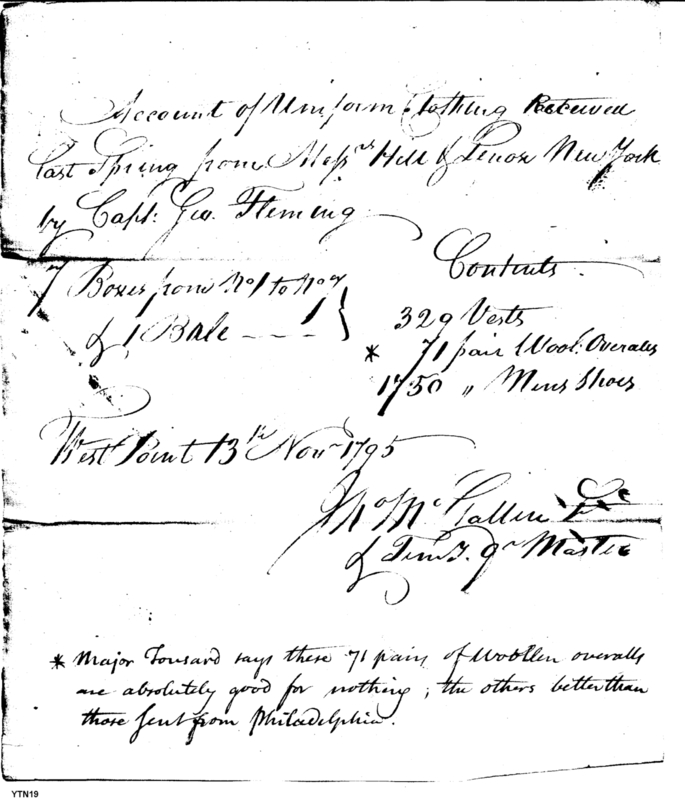 Account of Uniform Clothing Received
last Spring from Messrs Hill & Lenox New York
by Capt: Geo. Fleming
Contents
7 Boxes from No 1 to No 7
& 1 Bale — — — 1 }
329 Vests
* 71 pair Wool: Overalls
1750 " Mens Shoes
West Point 13th Novr 1795
Jno Mc Gallin
& Qr Master
* Major Tousard says these 71 pairs of Woollen overalls
are absolutely good for nothing; the others better than
those sent from Philadelphia.
YTN19